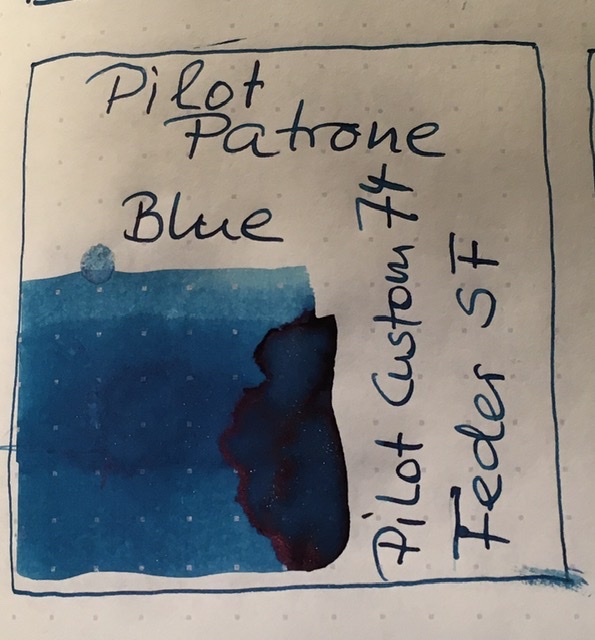 Pilot
Patrone
Blue
Pilot Custom 74
Feder SF